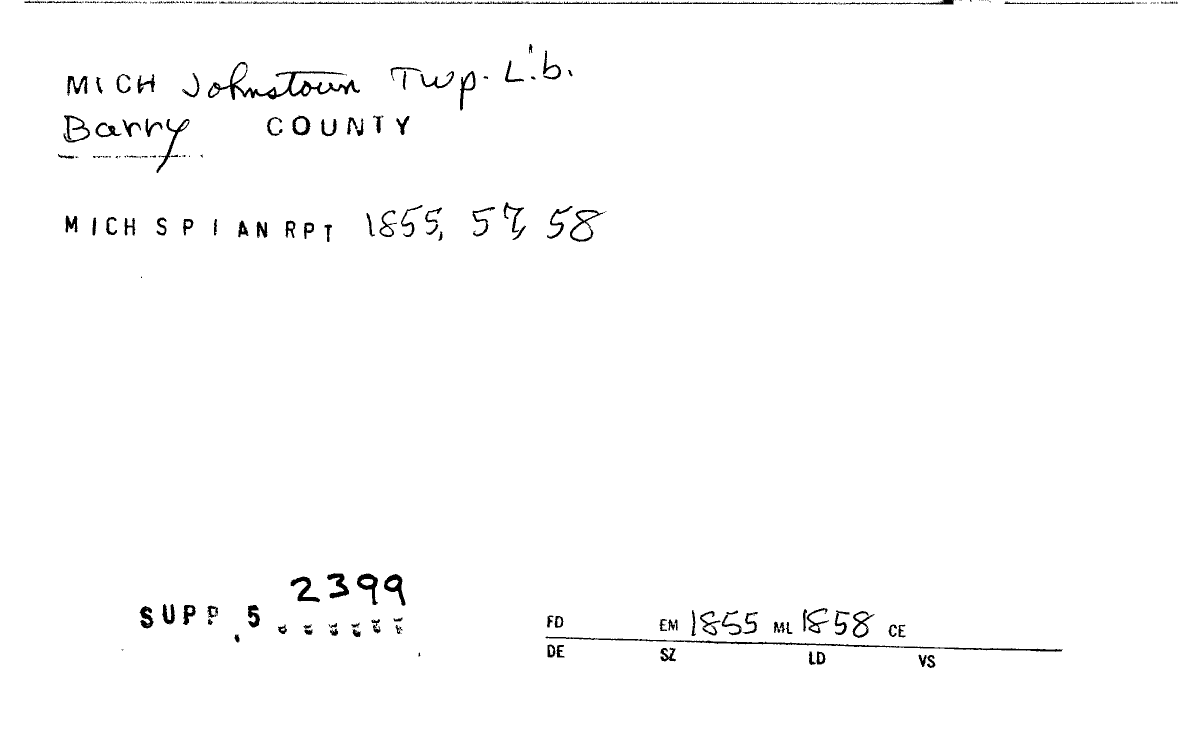 MICH Johnstown Twp. Lib.
Barry COUNTY
MICH SPI AN RPT 1855, 57, 58
2399
SUPP. 5
FD EM 1855 ML 1858 CE
DE SZ LD VS